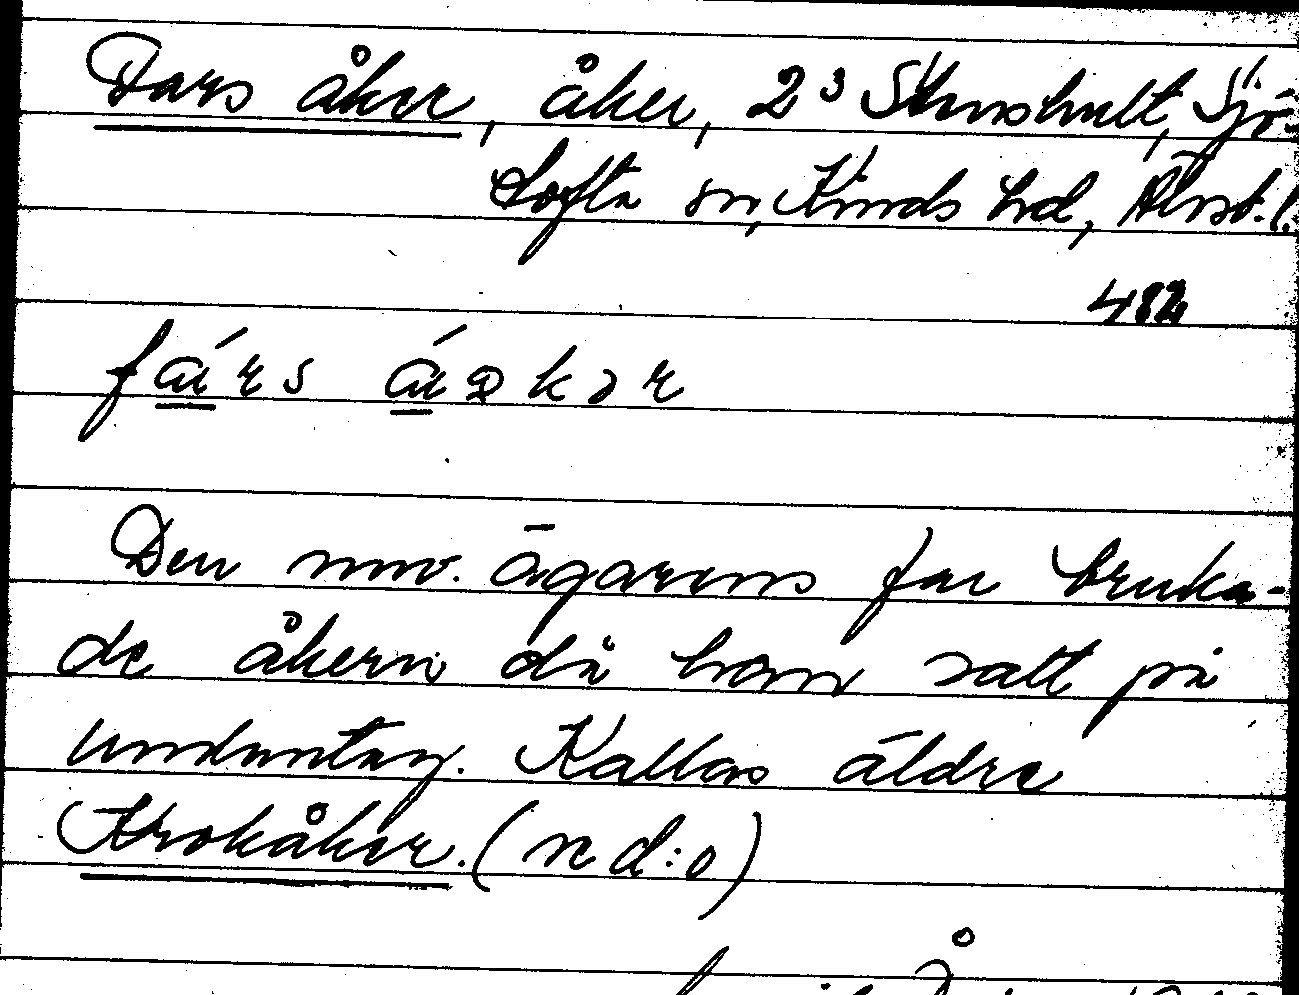 Fars åker, åker, 2³ Stenshult, Sjö-
tofta sn, Kinds hd, Älvsb. l.
482
fárs áɷkər
Den nuv. ägarens far bruka-
de åkern då han satt på
undantag. Kallas äldre
Krokåker. (n d:o)